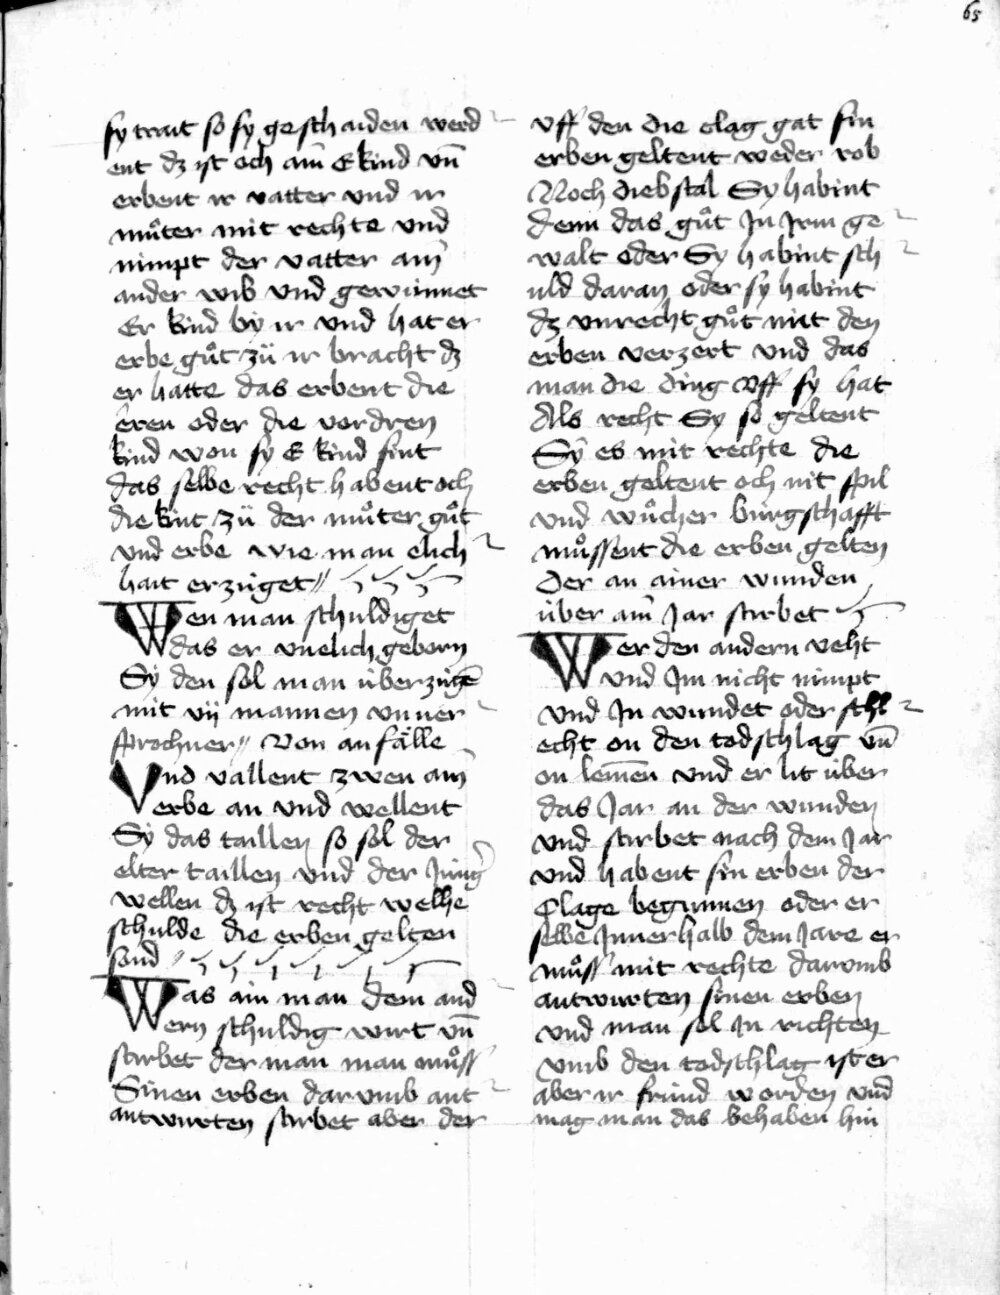 65
sy trait so sy geschaiden werd
ent dz ist och ain E kind vn̄
erbent ir vatter vnd ir
můter mit rechte vnd
nimpt der vatter ain
ander wib vnd gewinnet
Er kind by ir vnd hat er
erbe gůt zü ir bracht dz
er hatte das erbent die
eren oder die vordren
kind won sy E kind sint
das selbe recht habent och
die kint zü der můter gůt
vnd erbe wie man elich
hait erzüget
Wen man schuldiget
das er vnelich geborn
Sÿ den sol man überzüge᷑
mit vij mannen vnuer
sprochner Von anfälle
Vnd vallent zwen ain
erbe an vnd wellent
Sÿ das taillen so sol der
elter taillen vnd der Jüng᷑
wellen dz ist recht welhe
schulde die erben gelten
sond
Was ain man dem and
ern schuldig wirt vn̄
stirbet der man man můss
Sinen erben darumb ant
antwurten stirbet aber der
vff den die clag gat sin
erben geltent weder rob
Noch diebstal Sy habint
denn das gůt Jn Jrm ge
walt oder Sy habint sch
uld daran oder sy habint
dz vnrecht gůt mit den
erben verzert vnd das
man die ding vff sy hat
Als recht Sy so geltent
Sy es mit rechte die
erben geltent och nit spil
vnd wůcher bürgschafft
můssent die erben gelten
Der an ainer wunden
über ain Jar stirbet
Wer den andern veht
vnd Jm nicht nimpt
vnd Jn wundet oder schl
echt on den todschlag vn̄
on lemen vnd er lit über
das Jar an der wunden
vnd stirbet nach dem Jar
vnd habent sin erben der
Clage begunnen oder er
selbe Jnnerhalb dem Jare er
můss mit rechte darumb
antwurten sinen erben
vnd man sol Jn richten
vmb den todschlag ist er
aber ir fründ worden vnd
mag man das behaben hin